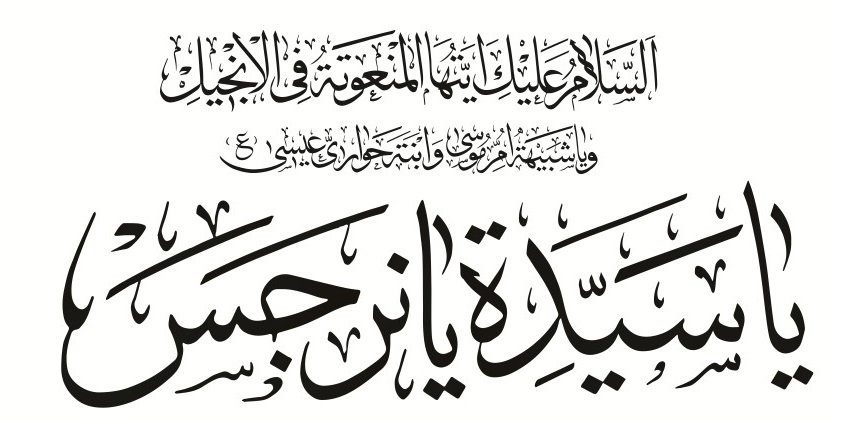 اَلسَّلامُ عَلَيْكِ اَيَّتُهَا الْمَنْعُوتَةُ فِى الْاِنْجيلِ
وَيا شَبيهَةَ اُمِّ مُوسى وَابْنَةَ حَوارِىِّ عيسى (ع)
يا سَيِّدَة يا نرجس